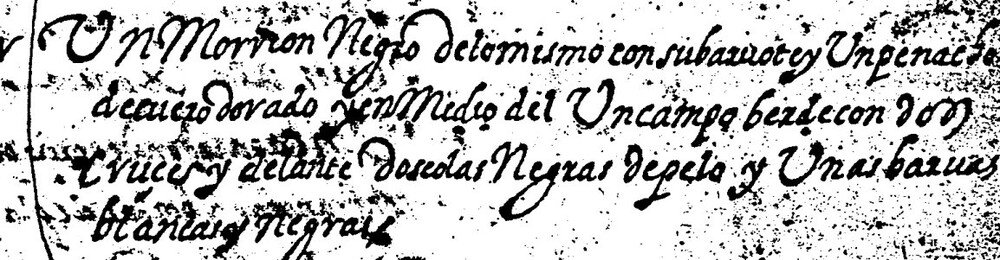 Un Morrion Negro de lo mismo con su barvote y Un penacho
de cuero dorado y en Medio del Un campo berde con dos
cruces y delante dos colas Negras de pelo y Unas barvas
blancas y negras